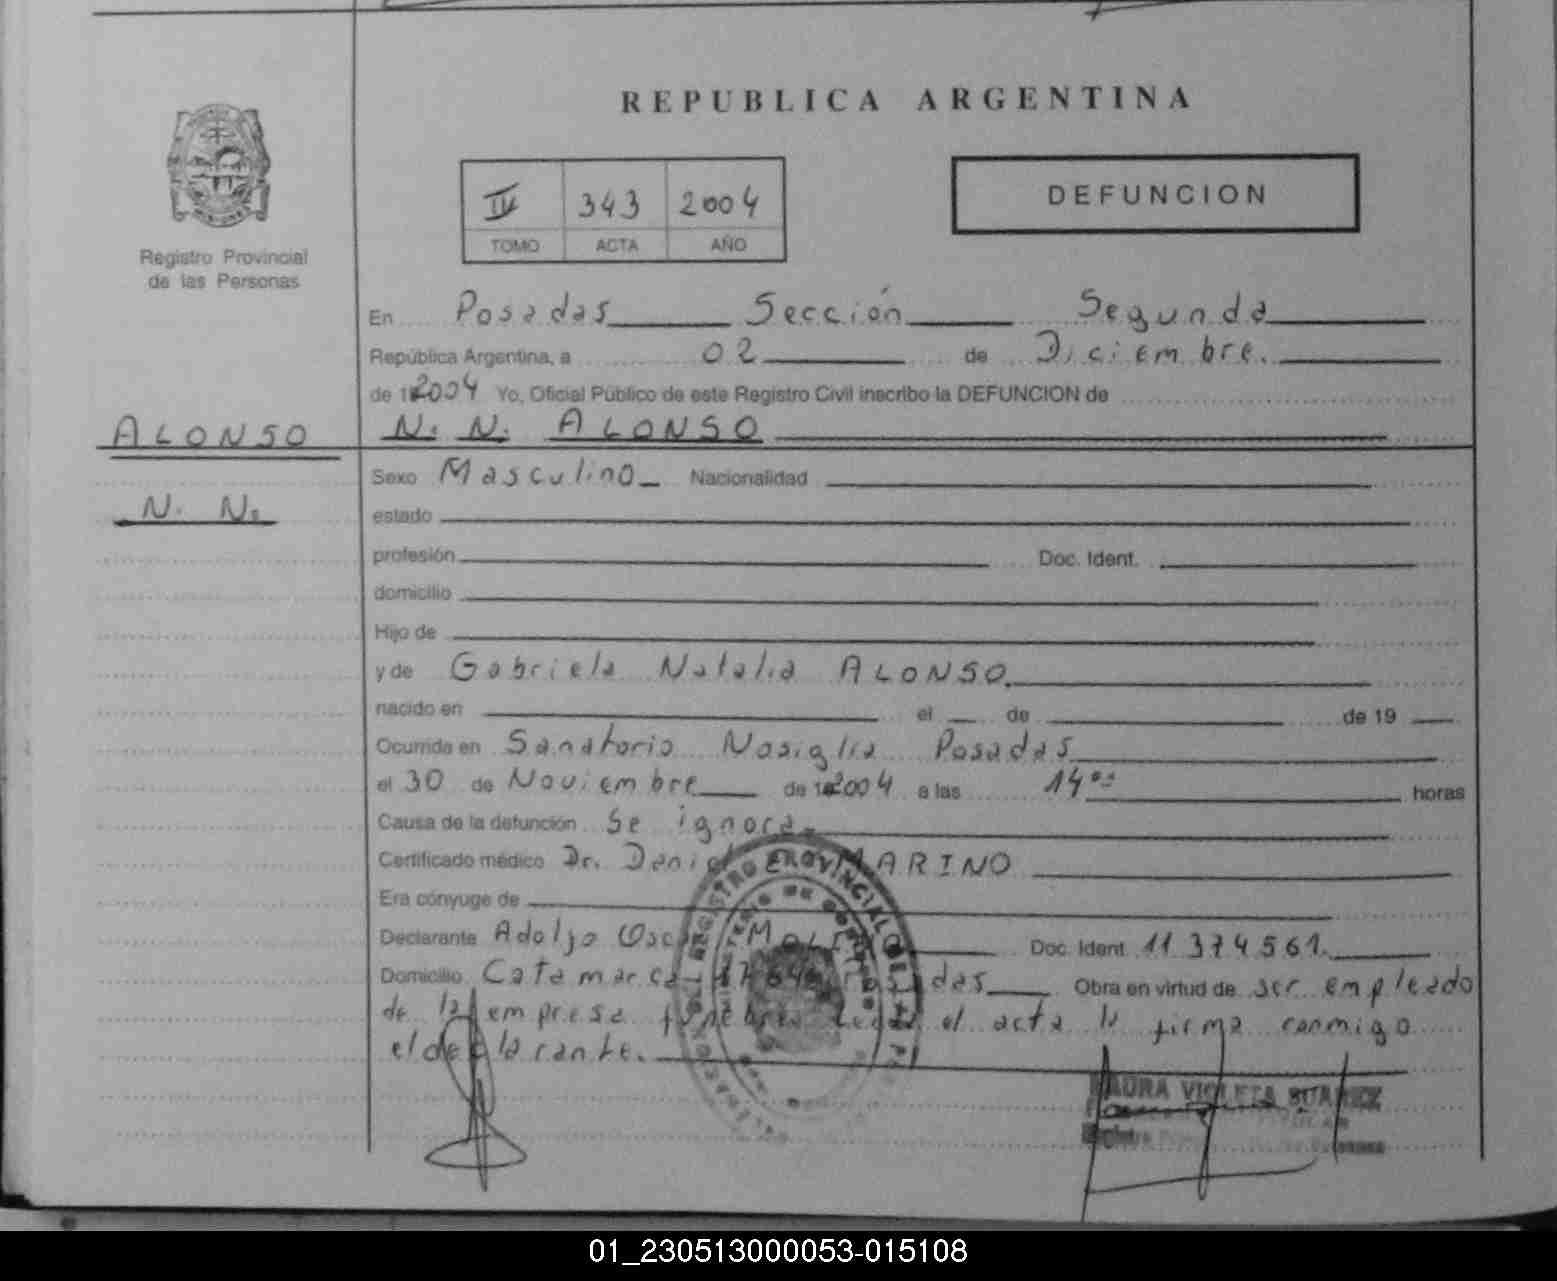 REPUBLICA ARGENTINA
Registro Provincial
de las Personas
IV 343 2004
TOMO ACTA AÑO
DEFUNCION
En Posadas Sección Segunda
República Argentina, a 02 de Diciembre.
de 2004 Yo, Oficial Público de este Registro Civil inscribo la DEFUNCION de
N. N. ALONSO
ALONSO
N. N.
Sexo Masculino Nacionalidad
estado
profesión Doc. Ident.
domicilio
Hijo de
y de Gabriela Natalia ALONSO.
nacido en el de de 19
Ocurrida en Sanatorio Nosiglia Posadas
el 30 de Noviembre de 2004 a las 14 horas
Causa de la defunción Se ignora.
Certificado médico Dr. MARINO
Era cónyuge de
Declarante Adolfo Doc. Ident. 11.374.561.
Domicilio Catamarca Obra en virtud de ser empleado
de la empresa el acta la firma conmigo
el declarante.
REGISTRO PROVINCIAL DE LAS
VIOLETA SUAREZ
01_230513000053-015108